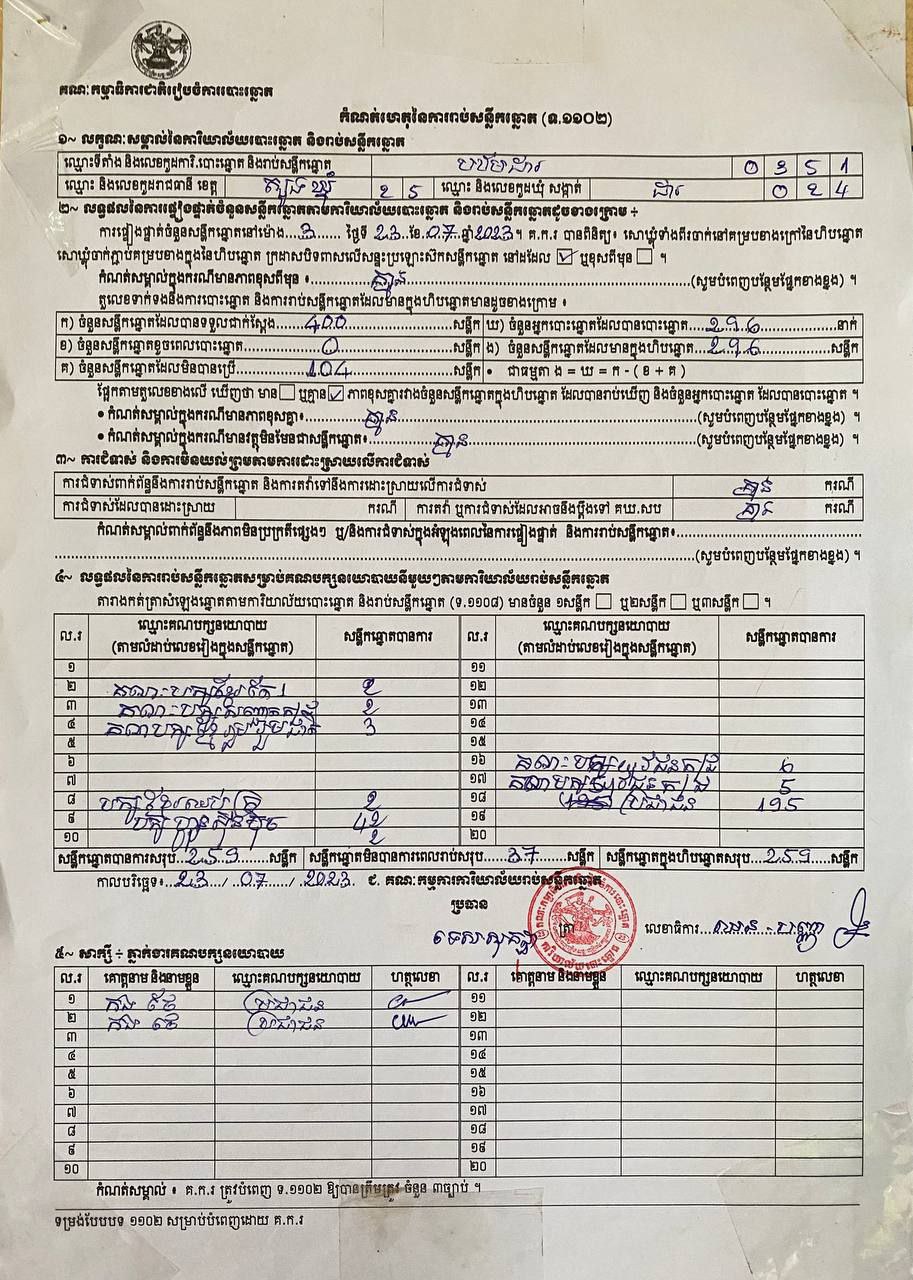 គណៈកម្មាធិការជាតិរៀបចំការបោះឆ្នោត
កំណត់ហេតុនៃការរាប់សន្លឹកឆ្នោត (ទ.១១០២)
១~ លក្ខណៈសម្គាល់នៃការិយាល័យបោះឆ្នោត និងរាប់សន្លឹកឆ្នោត
ឈ្មោះទីតាំង និងលេខកូដការិ.បោះឆ្នោត និងរាប់សន្លឹកឆ្នោត 0 3 5 1
ឈ្មោះ និងលេខកូដរាជធានី ខេត្ត ត្បូងឃ្មុំ 2 5 ឈ្មោះ និងលេខកូដឃុំ សង្កាត់ ដារ 0 2 4
២~ លទ្ធផលនៃការផ្ទៀងផ្ទាត់ចំនួនសន្លឹកឆ្នោតតាមការិយាល័យបោះឆ្នោត និងរាប់សន្លឹកឆ្នោតដូចខាងក្រោម ÷
ការផ្ទៀងផ្ទាត់ចំនួនសន្លឹកឆ្នោតនៅម៉ោង...3...... ថ្ងៃទី 23 .ខែ.07.ឆ្នាំ2023។ គ.ក.រ បានពិនិត្យ៖ សោឃ្លុំទាំងពីរចាក់នៅគម្របខាងក្រៅនៃហិបឆ្នោត
សោឃ្លុំចាក់ភ្ជាប់គម្របខាងក្នុងនៃហិបឆ្នោត ក្រដាសបិទពាសលើសន្ទះប្រឡោះស៊កសន្លឹកឆ្នោត នៅដដែល ☑ ឬខុសពីមុន ☐ ។
កំណត់សម្គាល់ក្នុងករណីមានភាពខុសពីមុន ៖ គ្មាន (សូមបំពេញបន្ថែមផ្នែកខាងខ្នង) ។
តួលេខទាក់ទងនឹងការបោះឆ្នោត និងការរាប់សន្លឹកឆ្នោតដែលមានក្នុងហិបឆ្នោតមានដូចខាងក្រោម ៖
ក) ចំនួនសន្លឹកឆ្នោតដែលបានទទួលជាក់ស្តែង 400 សន្លឹក ឃ) ចំនួនអ្នកបោះឆ្នោតដែលបានបោះឆ្នោត 296 នាក់
ខ) ចំនួនសន្លឹកឆ្នោតខូចពេលបោះឆ្នោត 0 សន្លឹក ង) ចំនួនសន្លឹកឆ្នោតដែលមានក្នុងហិបឆ្នោត 296 សន្លឹក
គ) ចំនួនសន្លឹកឆ្នោតដែលមិនបានប្រើ 104 សន្លឹក • ជាធម្មតា ង = ឃ = ក - ( ខ + គ )
ផ្អែកតាមតួលេខខាងលើ ឃើញថា មាន ☐ ឬគ្មាន ☑ ភាពខុសគ្នារវាងចំនួនសន្លឹកឆ្នោតក្នុងហិបឆ្នោត ដែលបានរាប់ឃើញ និងចំនួនអ្នកបោះឆ្នោត ដែលបានបោះឆ្នោត ។
• កំណត់សម្គាល់ក្នុងករណីមានភាពខុសគ្នា៖ គ្មាន (សូមបំពេញបន្ថែមផ្នែកខាងខ្នង) ។
• កំណត់សម្គាល់ក្នុងករណីមានវត្ថុមិនមែនជាសន្លឹកឆ្នោត៖ គ្មាន (សូមបំពេញបន្ថែមផ្នែកខាងខ្នង) ។
៣~ ការជំទាស់ និងការមិនយល់ព្រមតាមការដោះស្រាយលើការជំទាស់
ការជំទាស់ពាក់ព័ន្ធនឹងការរាប់សន្លឹកឆ្នោត និងការតវ៉ាទៅនឹងការដោះស្រាយលើការជំទាស់ គ្មាន ករណី
ការជំទាស់ដែលបានដោះស្រាយ ករណី ការតវ៉ា ឬការជំទាស់ដែលអាចនឹងប្តឹងទៅ គឃ.សប គ្មាន ករណី
កំណត់សម្គាល់ពាក់ព័ន្ធនឹងភាពមិនប្រក្រតីផ្សេងៗ ឬ/និងការជំទាស់ក្នុងអំឡុងពេលនៃការផ្ទៀងផ្ទាត់ និងការរាប់សន្លឹកឆ្នោត៖
(សូមបំពេញបន្ថែមផ្នែកខាងខ្នង) ។
៤~ លទ្ធផលនៃការរាប់សន្លឹកឆ្នោតសម្រាប់គណបក្សនយោបាយនីមួយៗតាមការិយាល័យរាប់សន្លឹកឆ្នោត
តារាងកត់ត្រាសំឡេងឆ្នោតតាមការិយាល័យបោះឆ្នោត និងរាប់សន្លឹកឆ្នោត (ទ.១១០៨) មានចំនួន ១សន្លឹក ☐ ឬ២សន្លឹក ☐ ឬ៣សន្លឹក ☐ ។
ល.រ ឈ្មោះគណបក្សនយោបាយ សន្លឹកឆ្នោតបានការ ល.រ ឈ្មោះគណបក្សនយោបាយ សន្លឹកឆ្នោតបានការ
(តាមលំដាប់លេខរៀងក្នុងសន្លឹកឆ្នោត) (តាមលំដាប់លេខរៀងក្នុងសន្លឹកឆ្នោត)
១ ១១
២ 2 ១២
៣ ១៣
៤ 3 ១៤
៥ ១៥
៦ ១៦
៧ ១៧ 5
៨ 2 ១៨ ប្រជាជន 195
៩ ១៩
១០ 2 ២០
សន្លឹកឆ្នោតបានការសរុប 259 សន្លឹក សន្លឹកឆ្នោតមិនបានការពេលរាប់សរុប 37 សន្លឹក សន្លឹកឆ្នោតក្នុងហិបឆ្នោតសរុប 259 សន្លឹក
កាលបរិច្ឆេទ៖ 23 / 07 / 2023 ជ. គណៈកម្មការការិយាល័យរាប់សន្លឹកឆ្នោត
ប្រធាន
ត្រា លេខាធិការ
៥~ សាក្សី ÷ ភ្នាក់ងារគណបក្សនយោបាយ
ល.រ គោត្តនាម និងនាមខ្លួន ឈ្មោះគណបក្សនយោបាយ ហត្ថលេខា ល.រ គោត្តនាម និងនាមខ្លួន ឈ្មោះគណបក្សនយោបាយ ហត្ថលេខា
១ ប្រជាជន ១១
២ ប្រជាជន ១២
៣ ១៣
៤ ១៤
៥ ១៥
៦ ១៦
៧ ១៧
៨ ១៨
៩ ១៩
១០ ២០
កំណត់សម្គាល់ ៖ គ.ក.រ ត្រូវបំពេញ ទ.១១០២ ឱ្យបានត្រឹមត្រូវ ចំនួន ៣ច្បាប់ ។
ទម្រង់បែបបទ ១១០២ សម្រាប់បំពេញដោយ គ.ក.រ